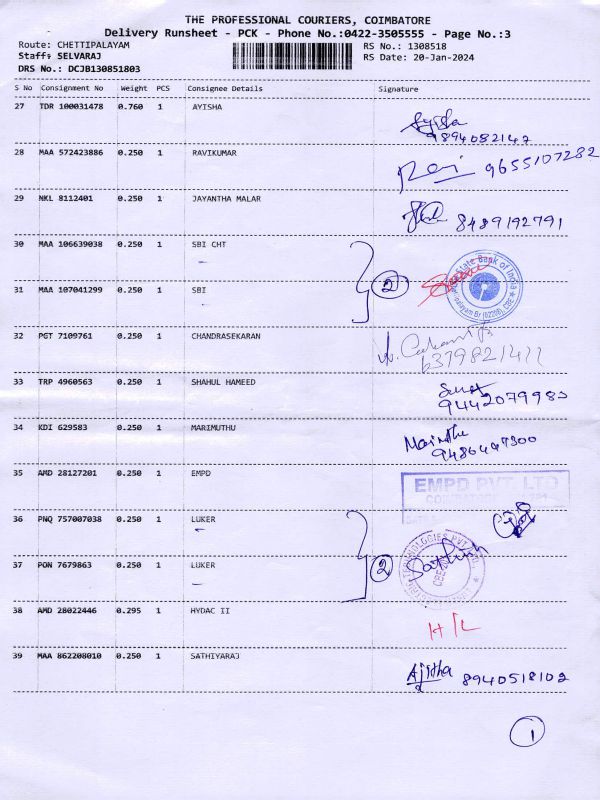 THE PROFESSIONAL COURIERS, COIMBATORE
Delivery Runsheet - PCK - Phone No.:0422-3505555 - Page No.:3
Route: CHETTIPALAYAM RS No.: 1308518
Staff: SELVARAJ RS Date: 20-Jan-2024
DRS No.: DCJB130851803
S No Consignment No Weight PCS Consignee Details Signature
27 TDR 100031478 0.760 1 AYISHA Ayisha
9894082147
28 MAA 572423886 0.250 1 RAVIKUMAR Ravi 9655107282
29 NKL 8112401 0.250 1 JAYANTHA MALAR 8489192791
30 MAA 106639038 0.250 1 SBI CHT
State Bank of India
2
31 MAA 107041299 0.250 1 SBI
32 PGT 7109761 0.250 1 CHANDRASEKARAN
6379821411
33 TRP 4960563 0.250 1 SHAHUL HAMEED
9442079983
34 KDI 629583 0.250 1 MARIMUTHU Marimuthu
9486447300
35 AMD 28127201 0.250 1 EMPD EMPD PVT. LTD
COIMBATORE
36 PNQ 757007038 0.250 1 LUKER
TECHNOLOGIES PVT LTD
2
37 PON 7679863 0.250 1 LUKER
38 AMD 28022446 0.295 1 HYDAC II H/L
39 MAA 862208010 0.250 1 SATHIYARAJ Ajitha 8940518102
1